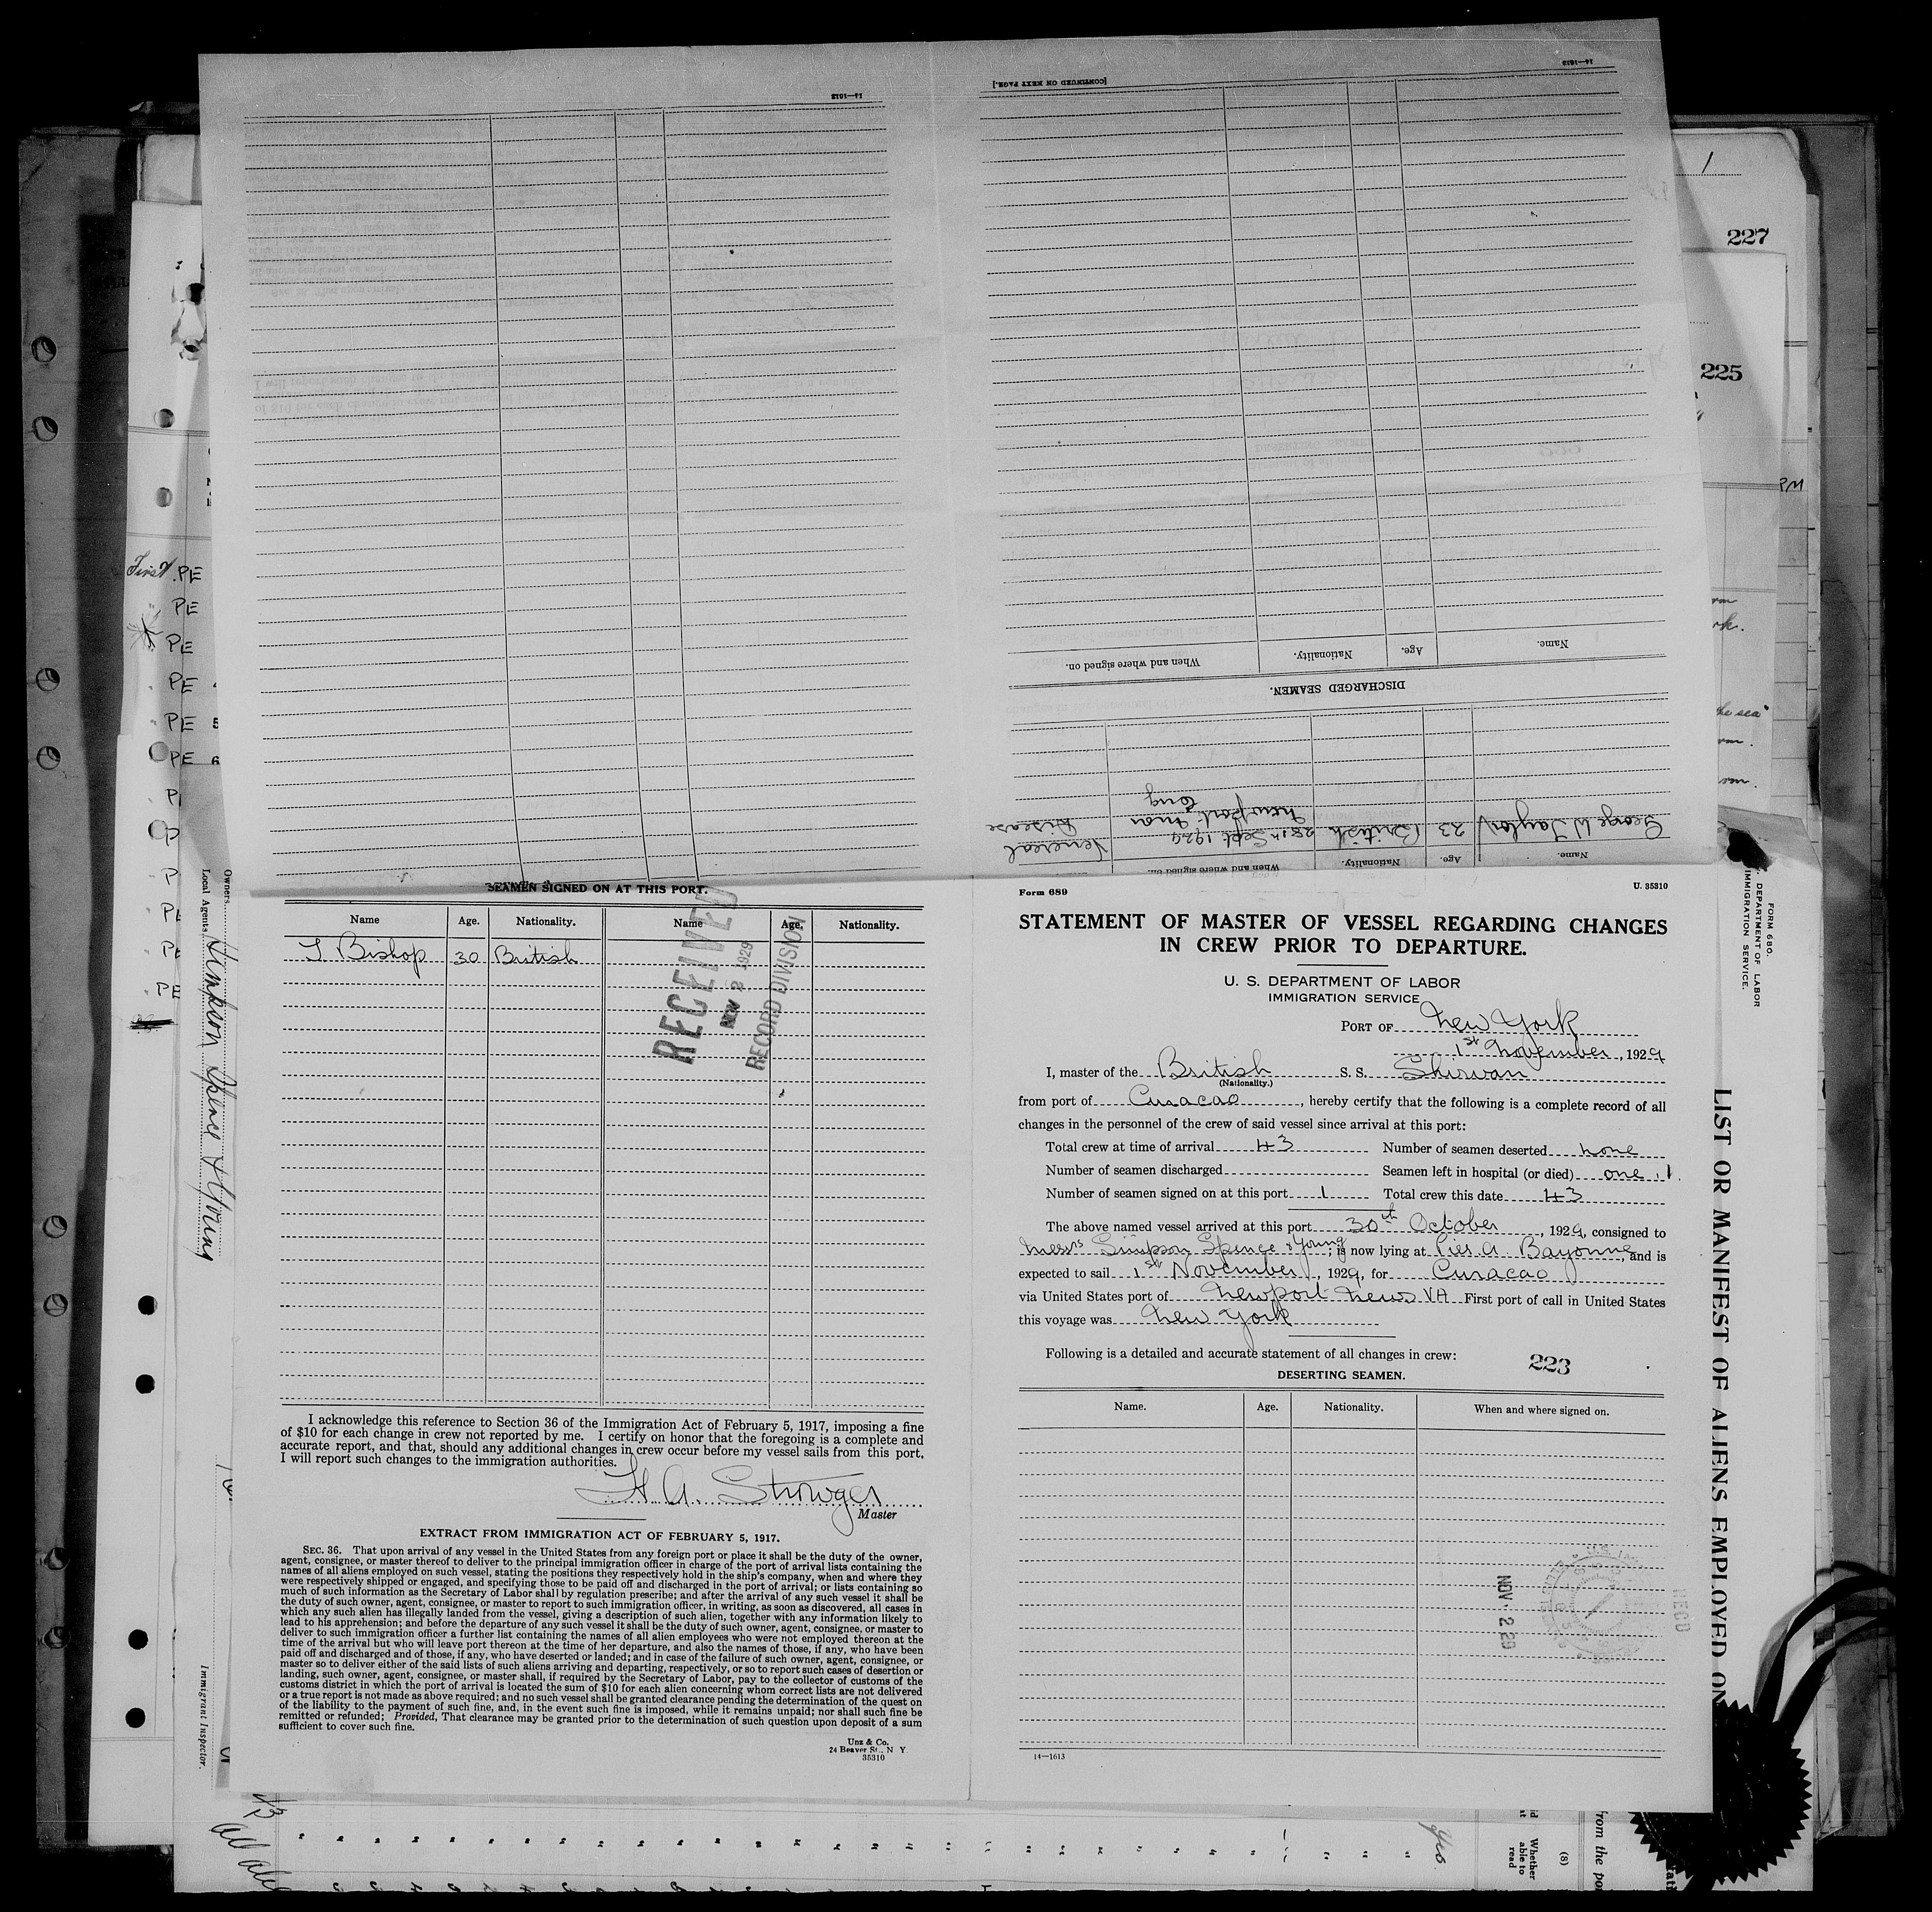 14—1613
[CONTINUED ON NEXT PAGE.]
14—1613
1
227
225
PM
First PE
PE
PE
PE
PE 5
PE 6
Name. Age. Nationality. When and where signed on.
DISCHARGED SEAMEN.
George W Taylor 23 British 28th Sept 1929 Venereal
Newport Mon Disease
Eng
Name. Age. Nationality. When and where signed on.
SEAMEN SIGNED ON AT THIS PORT.
Name Age. Nationality. Name Age. Nationality.
J. Bishop 30 British
RECEIVED
NOV 2 1929
RECORD DIVISION
I acknowledge this reference to Section 36 of the Immigration Act of February 5, 1917, imposing a fine
of $10 for each change in crew not reported by me. I certify on honor that the foregoing is a complete and
accurate report, and that, should any additional changes in crew occur before my vessel sails from this port,
I will report such changes to the immigration authorities.
H. A. Strowger
Master
EXTRACT FROM IMMIGRATION ACT OF FEBRUARY 5, 1917.
SEC. 36. That upon arrival of any vessel in the United States from any foreign port or place it shall be the duty of the owner,
agent, consignee, or master thereof to deliver to the principal immigration officer in charge of the port of arrival lists containing the
names of all aliens employed on such vessel, stating the positions they respectively hold in the ship's company, when and where they
were respectively shipped or engaged, and specifying those to be paid off and discharged in the port of arrival; or lists containing so
much of such information as the Secretary of Labor shall by regulation prescribe; and after the arrival of any such vessel it shall be
the duty of such owner, agent, consignee, or master to report to such immigration officer, in writing, as soon as discovered, all cases in
which any such alien has illegally landed from the vessel, giving a description of such alien, together with any information likely to
lead to his apprehension; and before the departure of any such vessel it shall be the duty of such owner, agent, consignee, or master to
deliver to such immigration officer a further list containing the names of all alien employees who were not employed thereon at the
time of the arrival but who will leave port thereon at the time of her departure, and also the names of those, if any, who have been
paid off and discharged and of those, if any, who have deserted or landed; and in case of the failure of such owner, agent, consignee, or
master so to deliver either of the said lists of such aliens arriving and departing, respectively, or so to report such cases of desertion or
landing, such owner, agent, consignee, or master shall, if required by the Secretary of Labor, pay to the collector of customs of the
customs district in which the port of arrival is located the sum of $10 for each alien concerning whom correct lists are not delivered
or a true report is not made as above required; and no such vessel shall be granted clearance pending the determination of the quest on
of the liability to the payment of such fine, and, in the event such fine is imposed, while it remains unpaid; nor shall such fine be
remitted or refunded; Provided, That clearance may be granted prior to the determination of such question upon deposit of a sum
sufficient to cover such fine.
Unz & Co.
24 Beaver St., N Y
35310
Form 689
U. 35310
STATEMENT OF MASTER OF VESSEL REGARDING CHANGES
IN CREW PRIOR TO DEPARTURE.
U. S. DEPARTMENT OF LABOR
IMMIGRATION SERVICE
PORT OF New York
1st November, 1929
I, master of the British S. S. Shirvan
(Nationality.)
from port of Curacao, hereby certify that the following is a complete record of all
changes in the personnel of the crew of said vessel since arrival at this port:
Total crew at time of arrival 43 Number of seamen deserted none
Number of seamen discharged Seamen left in hospital (or died) one 1
Number of seamen signed on at this port 1 Total crew this date 43
The above named vessel arrived at this port 30th October, 1929, consigned to
Messrs Simpson Spence & Young; is now lying at Pier A. Bayonne, and is
expected to sail 1st November, 1929, for Curacao
via United States port of Newport News VA First port of call in United States
this voyage was New York
Following is a detailed and accurate statement of all changes in crew:
223
DESERTING SEAMEN.
Name. Age. Nationality. When and where signed on.
NOV 2 29
RECD
14—1613
Owners
Local Agents Simpson Spence & Young
Immigrant Inspector.
FORM 680.
DEPARTMENT OF LABOR
IMMIGRATION SERVICE.
LIST OR MANIFEST OF ALIENS EMPLOYED ON
43
Yes
(8)
Whether
able to
read
from the po